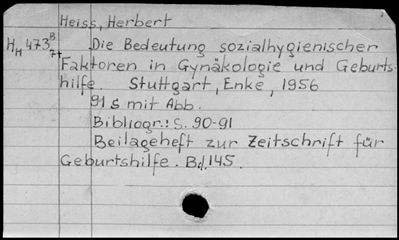 Heiss, Herbert
H_H 473^B_7+ Die Bedeutung sozialhygienischer
Faktoren in Gynäkologie und Geburts-
hilfe. Stuttgart, Enke, 1956
91 S mit Abb.
Bibliogr.: S. 90-91
Beilageheft zur Zeitschrift für
Geburtshilfe. Bd. 145.